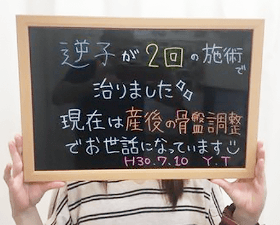 逆子が2回の施術で
治りました
現在は産後の骨盤調整
でお世話になっています
H30.7.10 Y.T